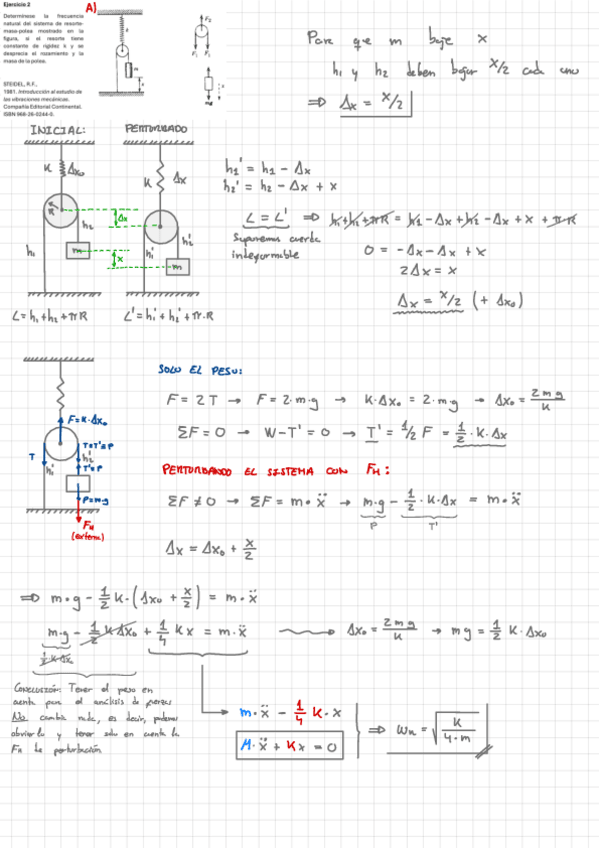 Ejercicio 2
A)
Determínese la frecuencia
natural del sistema de resorte-
masa-polea mostrado en la
figura, si el resorte tiene
constante de rigidez k y se
desprecia el rozamiento y la
masa de la polea.
STEIDEL, R.F.,
1981. Introducción al estudio de
las vibraciones mecánicas.
Compañía Editorial Continental.
ISBN 968-26-0244-5.
Para que m baje x
h₁ y h₂ deben bajar x/2 cada uno
⇒ Δx = x/2
INICIAL: PERTURBADO
K Δx₀ K Δx
R h₂ h₁ m Δx x h₂' h₁' m
h₁' = h₁ - Δx
h₂' = h₂ - Δx + x
L = L' ⇒ h₁+h₂+πR = h₁ - Δx + h₂ - Δx + x + πR
Suponemos cuerda
indeformable
0 = -Δx - Δx + x
2Δx = x
Δx = x/2 (+ Δx₀)
L = h₁ + h₂ + πR L' = h₁' + h₂' + π·R
SOLO EL PESO:
F = 2T → F = 2·m·g → K·Δx₀ = 2·m·g → Δx₀ = 2mg/K
ΣF = 0 → W - T' = 0 → T' = 1/2 F = 1/2 · K·Δx
F = K·Δx₀
T T=T'=P
h₁' h₂'
T'=P
P=mg
F_H
(externa)
PERTURBANDO EL SISTEMA CON F_H:
ΣF ≠ 0 → ΣF = m·ẍ → m·g - 1/2·K·Δx = m·ẍ
P T'
Δx = Δx₀ + x/2
⇒ m·g - 1/2 K·(Δx₀ + x/2) = m·ẍ
m·g - 1/2 K Δx₀ + 1/4 Kx = m·ẍ Δx₀ = 2mg/K → mg = 1/2 K·Δx₀
1/2 K·Δx₀
CONCLUSIÓN: Tener el peso en
cuenta para el análisis de fuerzas
NO cambia nada, es decir, podemos
obviarlo y tener solo en cuenta la
F_H de perturbación
m·ẍ - 1/4 K·x
M·ẍ + Kx = 0
⇒ ωn = √(K/4·m)